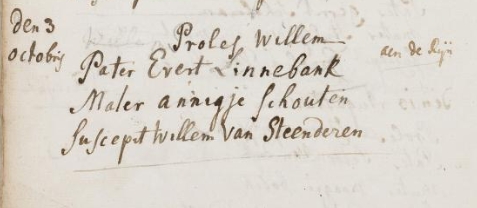 den 3
octobris
Proles Willem
Pater Evert Linnebank
aen de Rijn
Mater annigje Schouten
Suscepit Willem van Steenderen